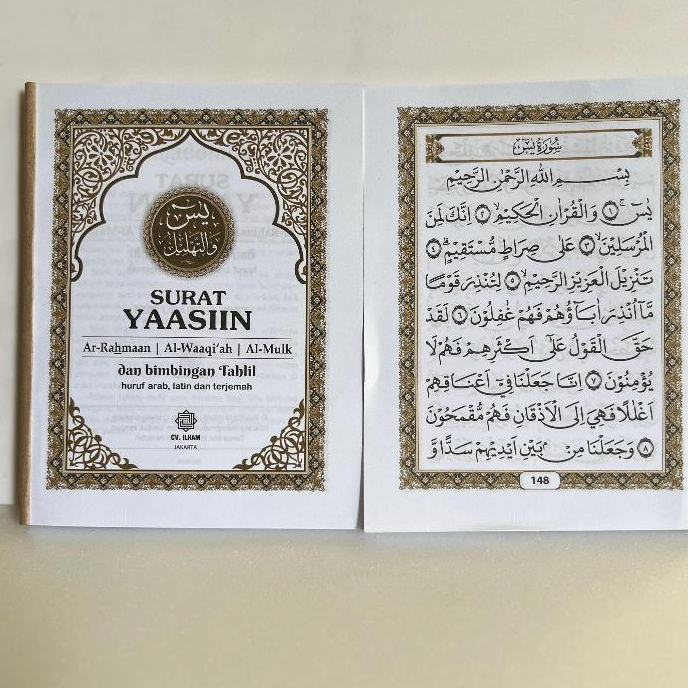 يس
والتهليل
SURAT
YAASIIN
Ar-Rahmaan | Al-Waaqi'ah | Al-Mulk
dan bimbingan Tahlil
huruf arab, latin dan terjemah
CV. ILHAM
JAKARTA
سُوْرَةُ يٰسۤ
بِسْمِ اللهِ الرَّحْمٰنِ الرَّحِيْمِ
يٰسۤ ۚ ١ وَالْقُرْاٰنِ الْحَكِيْمِۙ ٢ اِنَّكَ لَمِنَ
الْمُرْسَلِيْنَۙ ٣ عَلٰى صِرَاطٍ مُّسْتَقِيْمٍۗ ٤
تَنْزِيْلَ الْعَزِيْزِ الرَّحِيْمِۙ ٥ لِتُنْذِرَ قَوْمًا
مَّآ اُنْذِرَ اٰبَاۤؤُهُمْ فَهُمْ غٰفِلُوْنَ ٦ لَقَدْ
حَقَّ الْقَوْلُ عَلٰٓى اَكْثَرِهِمْ فَهُمْ لَا
يُؤْمِنُوْنَ ٧ اِنَّا جَعَلْنَا فِيْٓ اَعْنَاقِهِمْ
اَغْلٰلًا فَهِيَ اِلَى الْاَذْقَانِ فَهُمْ مُّقْمَحُوْنَ
٨ وَجَعَلْنَا مِنْۢ بَيْنِ اَيْدِيْهِمْ سَدًّا وَّ
148